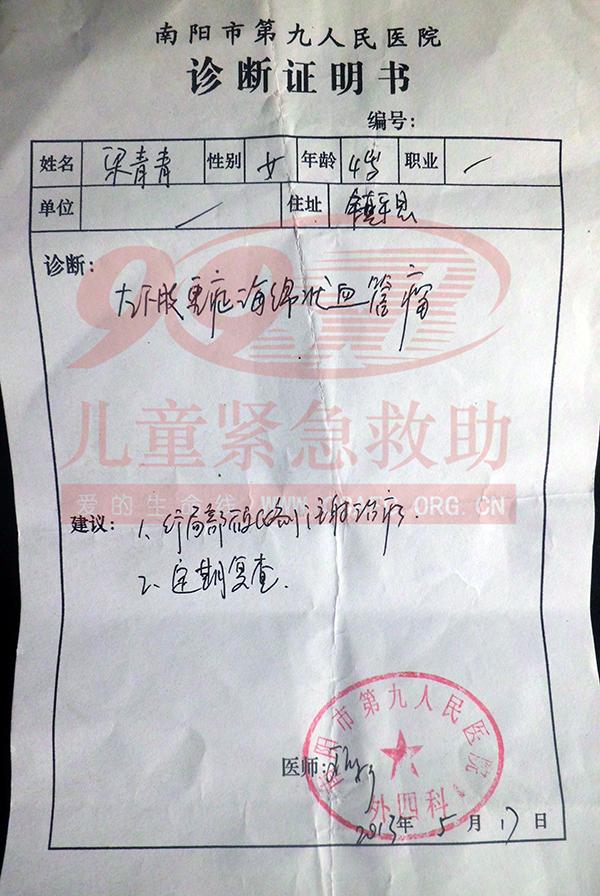 南阳市第九人民医院
诊断证明书
编号：
姓名 梁青青 性别 女 年龄 4岁 职业 /
单位 / 住址 镇平县
诊断：
海绵状血管瘤
90
儿童紧急救助
爱的生命线 .ORG.CN
建议：1、行局部硬化剂注射治疗.
2、定期复查.
南阳市第九人民医院
医师：
外四科
2013年5月17日